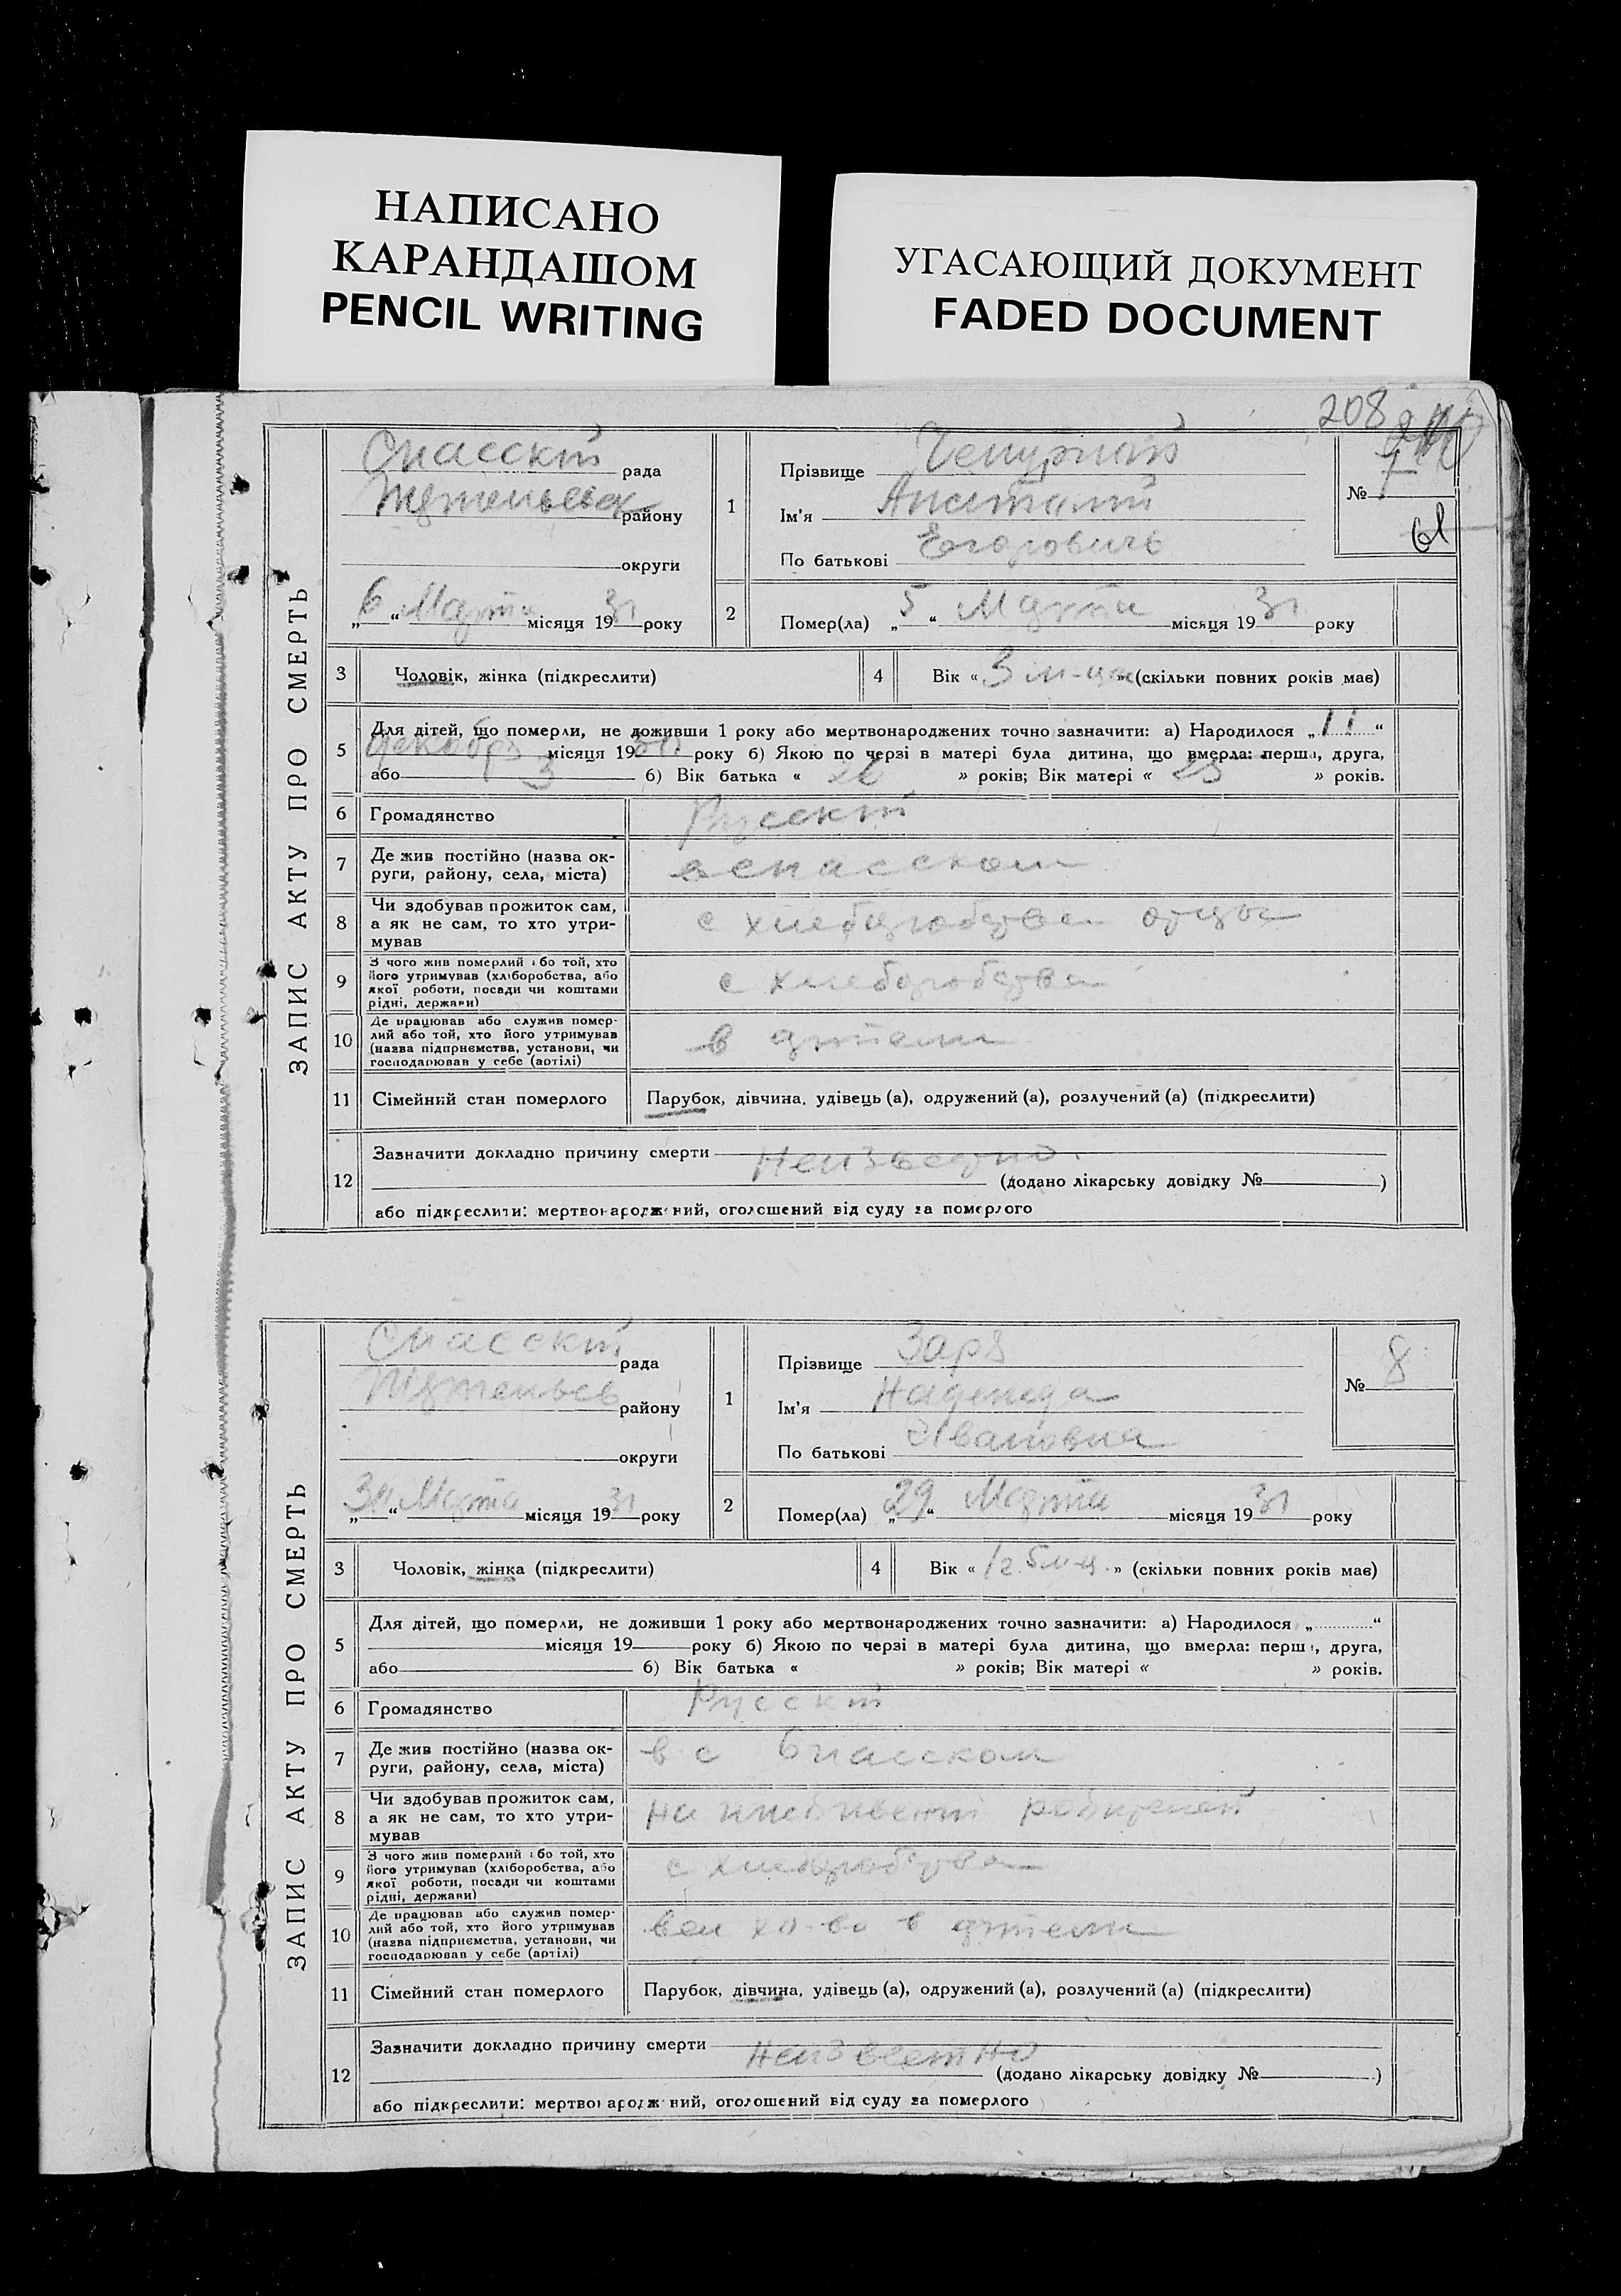 НАПИСАНО
КАРАНДАШОМ
PENCIL WRITING
УГАСАЮЩИЙ ДОКУМЕНТ
FADED DOCUMENT
208
ЗАПИС АКТУ ПРО СМЕРТЬ
Спасскій рада
району
округи
„6“ Марта місяця 1931 року
1
Прізвище Чепурной
Ім'я Анатолий
По батькові Егоровичь
№ 7
61
2
Помер(ла) „5“ Марта місяця 1931 року
3 Чоловік, жінка (підкреслити)
4 Вік «3 м-ца» (скільки повних років має)
5 Для дітей, що померли, не доживши 1 року або мертвонароджених точно зазначити: а) Народилося „11“
декабря місяця 1930 року б) Якою по черзі в матері була дитина, що вмерла: перша, друга,
або 3 б) Вік батька « 26 » років; Вік матері « 25 » років.
6 Громадянство Русскій
7 Де жив постійно (назва ок-
руги, району, села, міста) в спасском
8 Чи здобував прожиток сам,
а як не сам, то хто утри-
мував с хлеборобства отца
9 З чого жив померлий або той, хто
його утримував (хліборобства, або
якої роботи, посади чи коштами
рідні, держави) с хлеборобства
10 Де працював або служив помер-
лий або той, хто його утримував
(назва підприємства, установи, чи
господарював у себе (артілі) в артели
11 Сімейний стан померлого Парубок, дівчина, удівець (а), одружений (а), розлучений (а) (підкреслити)
12 Зазначити докладно причину смерти Неизвестно.
(додано лікарську довідку № )
або підкреслити: мертвонароджений, оголошений від суду за померлого
ЗАПИС АКТУ ПРО СМЕРТЬ
Спасскій рада
району
округи
„30“ Марта місяця 1931 року
1
Прізвище Заря
Ім'я Надежда
По батькові Ивановна
№ 8
2
Помер(ла) „29“ Марта місяця 1931 року
3 Чоловік, жінка (підкреслити)
4 Вік «1 г. 5 м-ц.» (скільки повних років має)
5 Для дітей, що померли, не доживши 1 року або мертвонароджених точно зазначити: а) Народилося „ “
місяця 19 року б) Якою по черзі в матері була дитина, що вмерла: перша, друга,
або б) Вік батька « » років; Вік матері « » років.
6 Громадянство Русскій
7 Де жив постійно (назва ок-
руги, району, села, міста) в с Спасском
8 Чи здобував прожиток сам,
а як не сам, то хто утри-
мував на родителей
9 З чого жив померлий або той, хто
його утримував (хліборобства, або
якої роботи, посади чи коштами
рідні, держави) с хлеборобства
10 Де працював або служив помер-
лий або той, хто його утримував
(назва підприємства, установи, чи
господарював у себе (артілі) вел хо-во в артели
11 Сімейний стан померлого Парубок, дівчина, удівець (а), одружений (а), розлучений (а) (підкреслити)
12 Зазначити докладно причину смерти Неизвестно
(додано лікарську довідку № )
або підкреслити: мертвонароджений, оголошений від суду за померлого